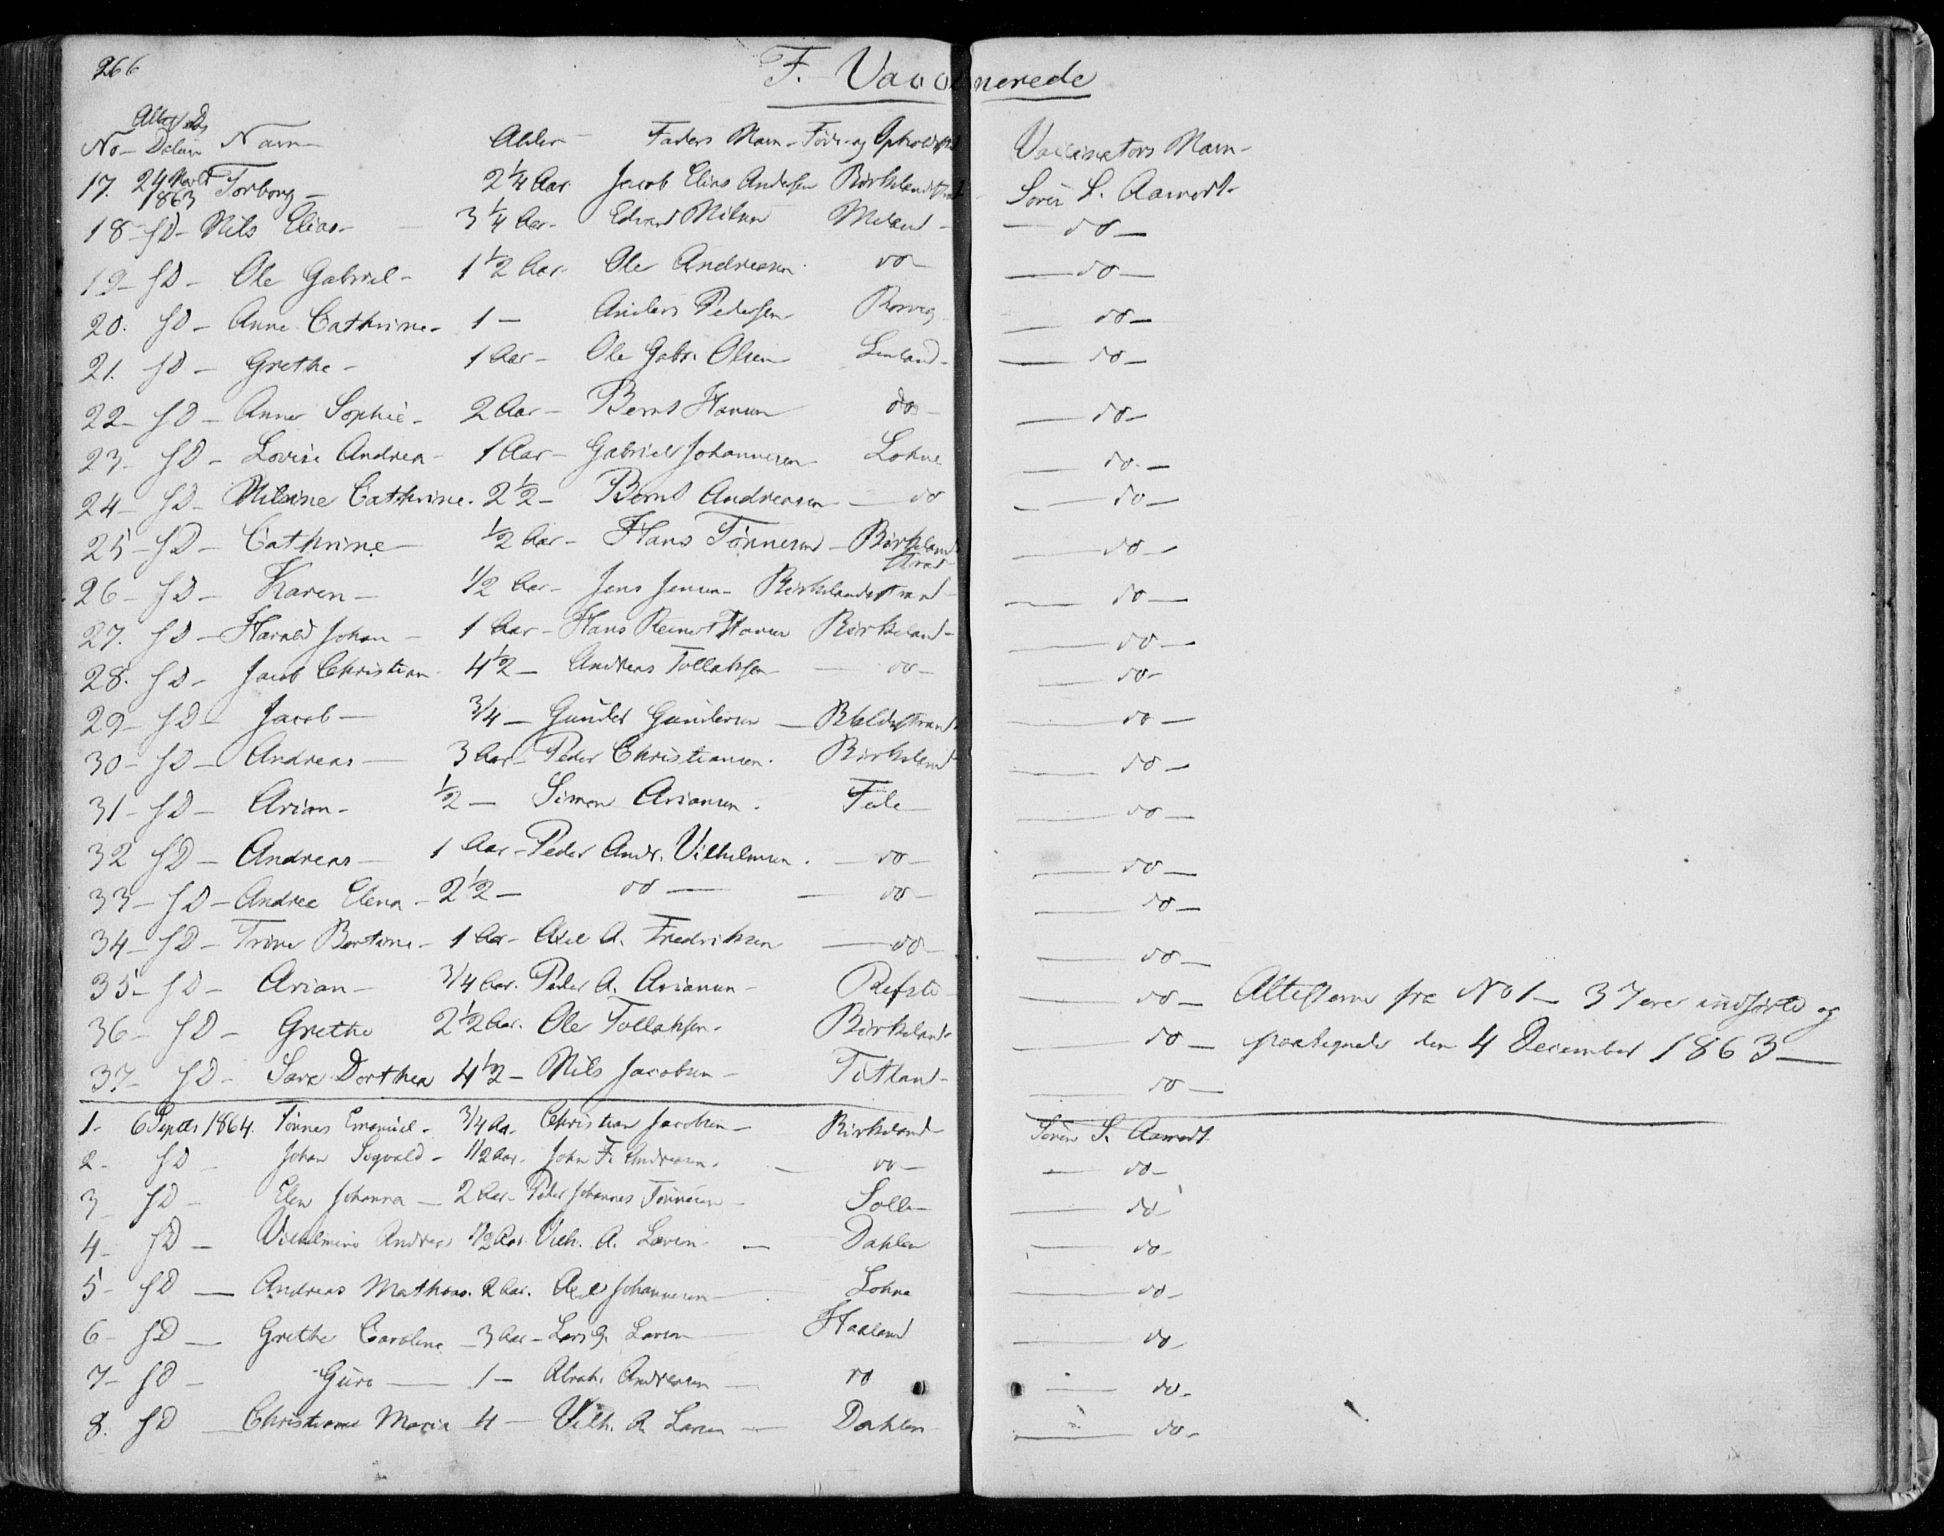 266
F. Vaccinerede
No - Attest Ds Datum Navn - Alder - Faders Navn - Føde- og Opholdsst Vaccinators Navn -
17. 24 Novbr 1863 Torborg - 2 1/4 Aar Jacob Elias Andersen Birkelandstrand - Søren S. Aamodt -
18 - SD - Nils Elias - 3 1/4 Aar - Edvard Nilsen Meland - do -
19 - SD - Ole Gabriel - 1 1/2 Aar - Ole Andreasen do - do -
20. SD - Anne Cathrine - 1 - Anders Pedersen do -
21. SD - Grethe - 1 Aar - Ole Gabr. Olsen Lunland - do -
22 - SD - Anne Sophie - 2 Aar - Bernt Hansen do - do -
23 - SD - Lovise Andrea - 1 Aar - Gabriel Johannesen Lohne do. -
24 - SD - Nilsine Cathrine. 2 1/2 - Bernt Andreasen - do do -
25 - SD - Cathrine - 1/2 Aar - Hans Tønnesen - Birkelandstrand do -
26 - SD - Karen - 1/2 Aar - Jens Jensen - Birkelandstrand - do -
27. SD - Harald Johan - 1 Aar - Hans Reinert Hansen Birkeland - do -
28. SD - Jacob Christian 4 1/2 - Andreas Tollaksen do - do -
29 - SD - Jacob - 3/4 - Gunder Gundersen - Bkldstrand do -
30 - SD - Andreas - 3 Aar - Peder Christiansen. Birkeland do -
31 - SD - Arian - 1/2 - Simon Ariansen. Fede - do -
32 SD - Andreas - 1 Aar - Peder Andr. Vilhelmsen. - do - do -
33 - SD - Andrea Elena - 2 1/2 - do - do - do -
34 - SD - Trine Bertine - 1 Aar - Axel A. Fredriksen - do - do -
35 - SD - Arian - 3/4 Aar. Peder A. Ariansen - Refsti - do -
36 - SD - Grethe 2 1/2 Aar. Ole Tollaksen. Birkeland - do -
37 - SD - Sara Dorthea 4 1/2 - Nils Jacobsen - Titland - do -
Attesterne fra No 1 - 37 ere indførte og
paategnede den 4 December 1863 -
1 - 6 Septbr 1864. Tønnes Emanuel - 3/4 Aa. Christian Jacobsen - Birkeland - Søren S. Aamodt
2 - SD - Johan Sigvald - 1 1/2 Aar. John F. Andreasen. - do - do -
3 SD - Elen Johanna - 2 Aar - Peder Johannes Tønnesen - Solli - do -
4 - SD - Vilhelmine Andrea 1/2 Aar. Vilh. A. Larsen - Dahlen do -
5 - SD - Andreas Mathias. 2 Aar. Axel Johannesen - Lohne do -
6 - SD - Grethe Caroline - 3 Aar - Lars G. Larsen Haaland do -
7 - SD - Guro - 1 - Abrah. Andreasen - do do -
8. SD - Christiane Maria 4 - Vilh. A. Larsen - Dahlen do -